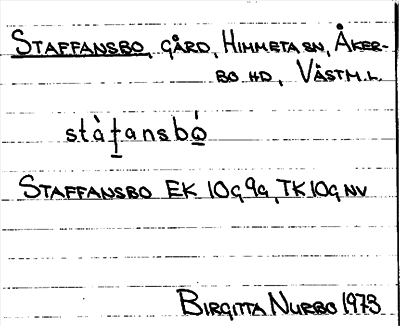 STAFFANSBO, GÅRD, HIMMETA SN, ÅKER-
BO HD, VÄSTM.L.
stàf̱ansbó̲
STAFFANSBO EK 10G9G, TK 10G NV
BIRGITTA NURBO 1973